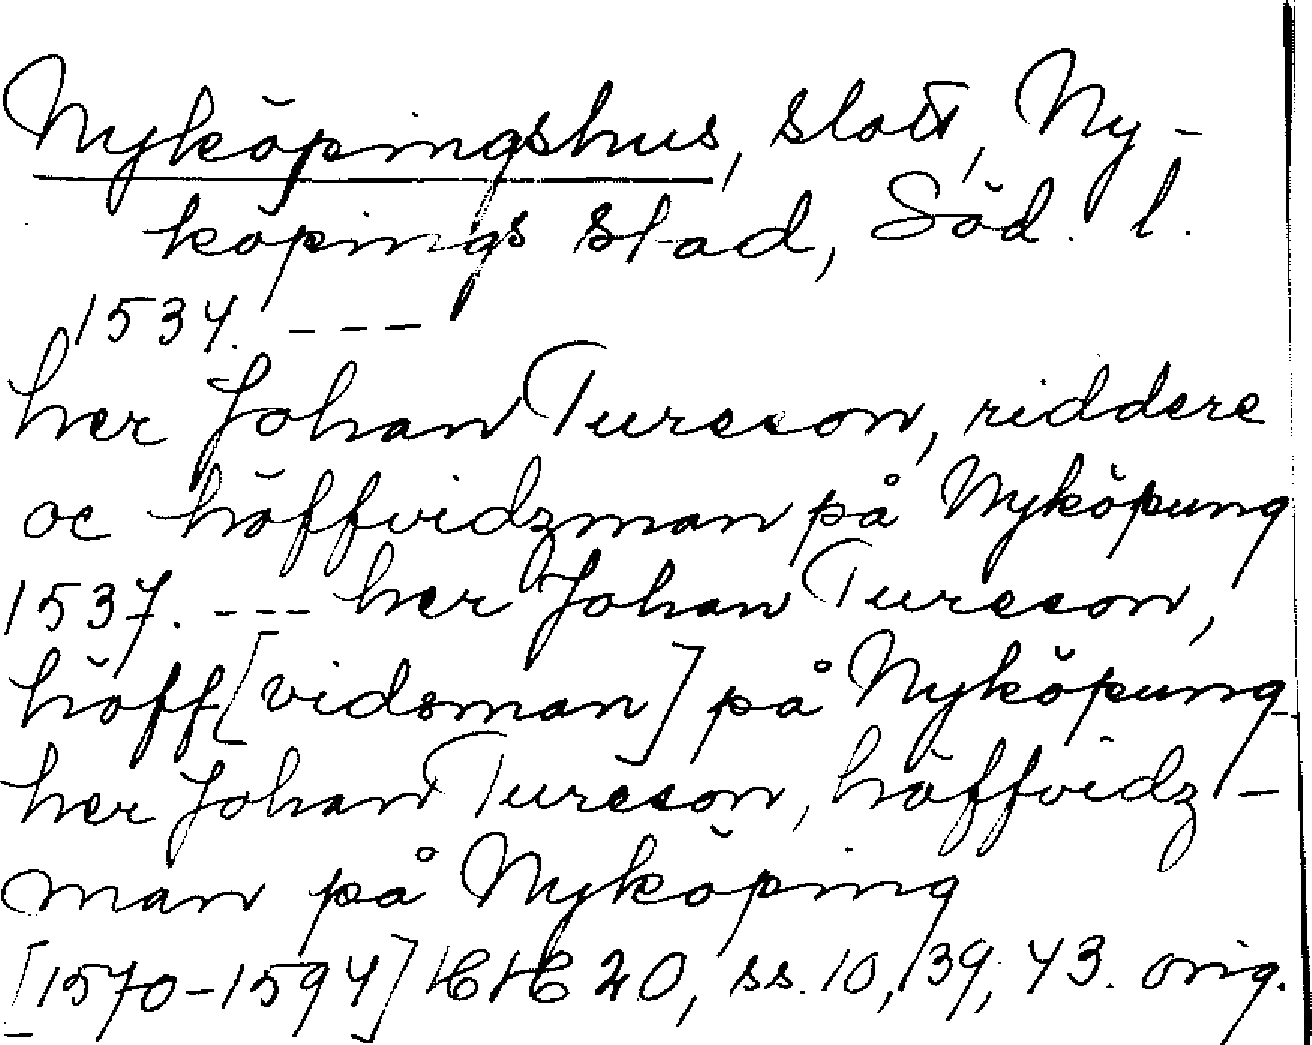 Nyköpingshus, slott, Ny-
köpings stad, Söd. l.
1534. ---
her Johan Tureson, riddere
oc höffvidzman på Nyköpung
1537. --- her Johan Tureson,
höff[vidsman] på Nyköpung
her Johan Tureson, höffvidz-
man på Nyköping
[1570-1594] HH 20, ss. 10, 39, 43. orig.